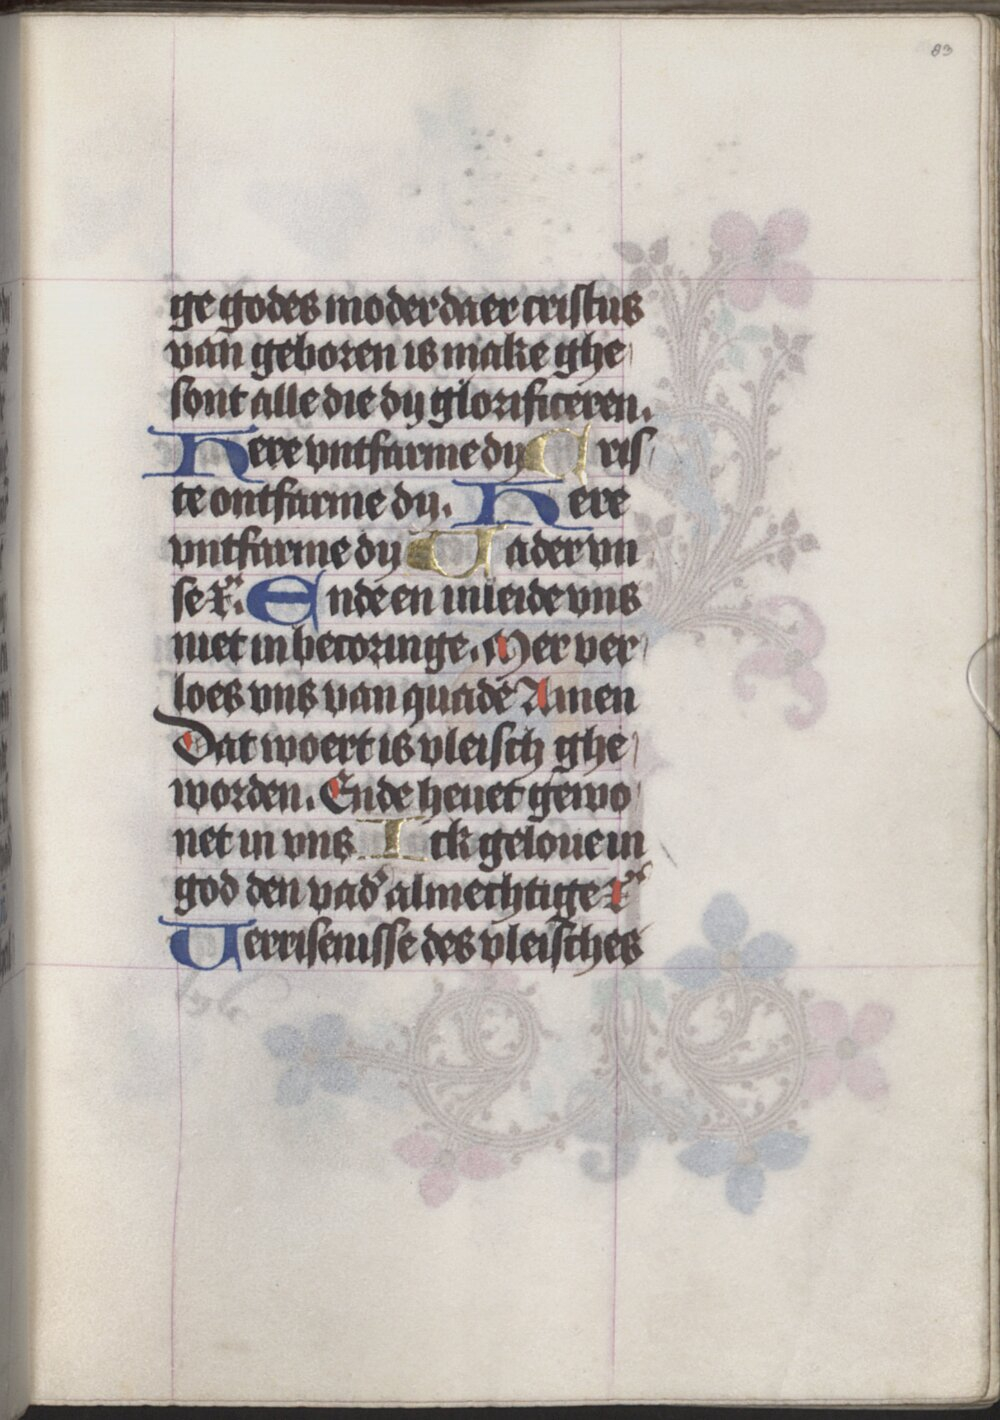 83
ge godes moder daer cristus
van geboren is make ghe
sont alle die dy glorificeren.
Here vntfarme dy Cris
te ontfarme dy. Here
vntfarme dy Vader vn
se x̃. Ende en inleide vns
niet in becoringe. Mer ver
loes vns van quade Amen
Dat woert is vleisch ghe
worden. Ende heuet gewo
net in vns Ick geloue in
god den vad' almechtige x̃
Verrisenisse des vleisches